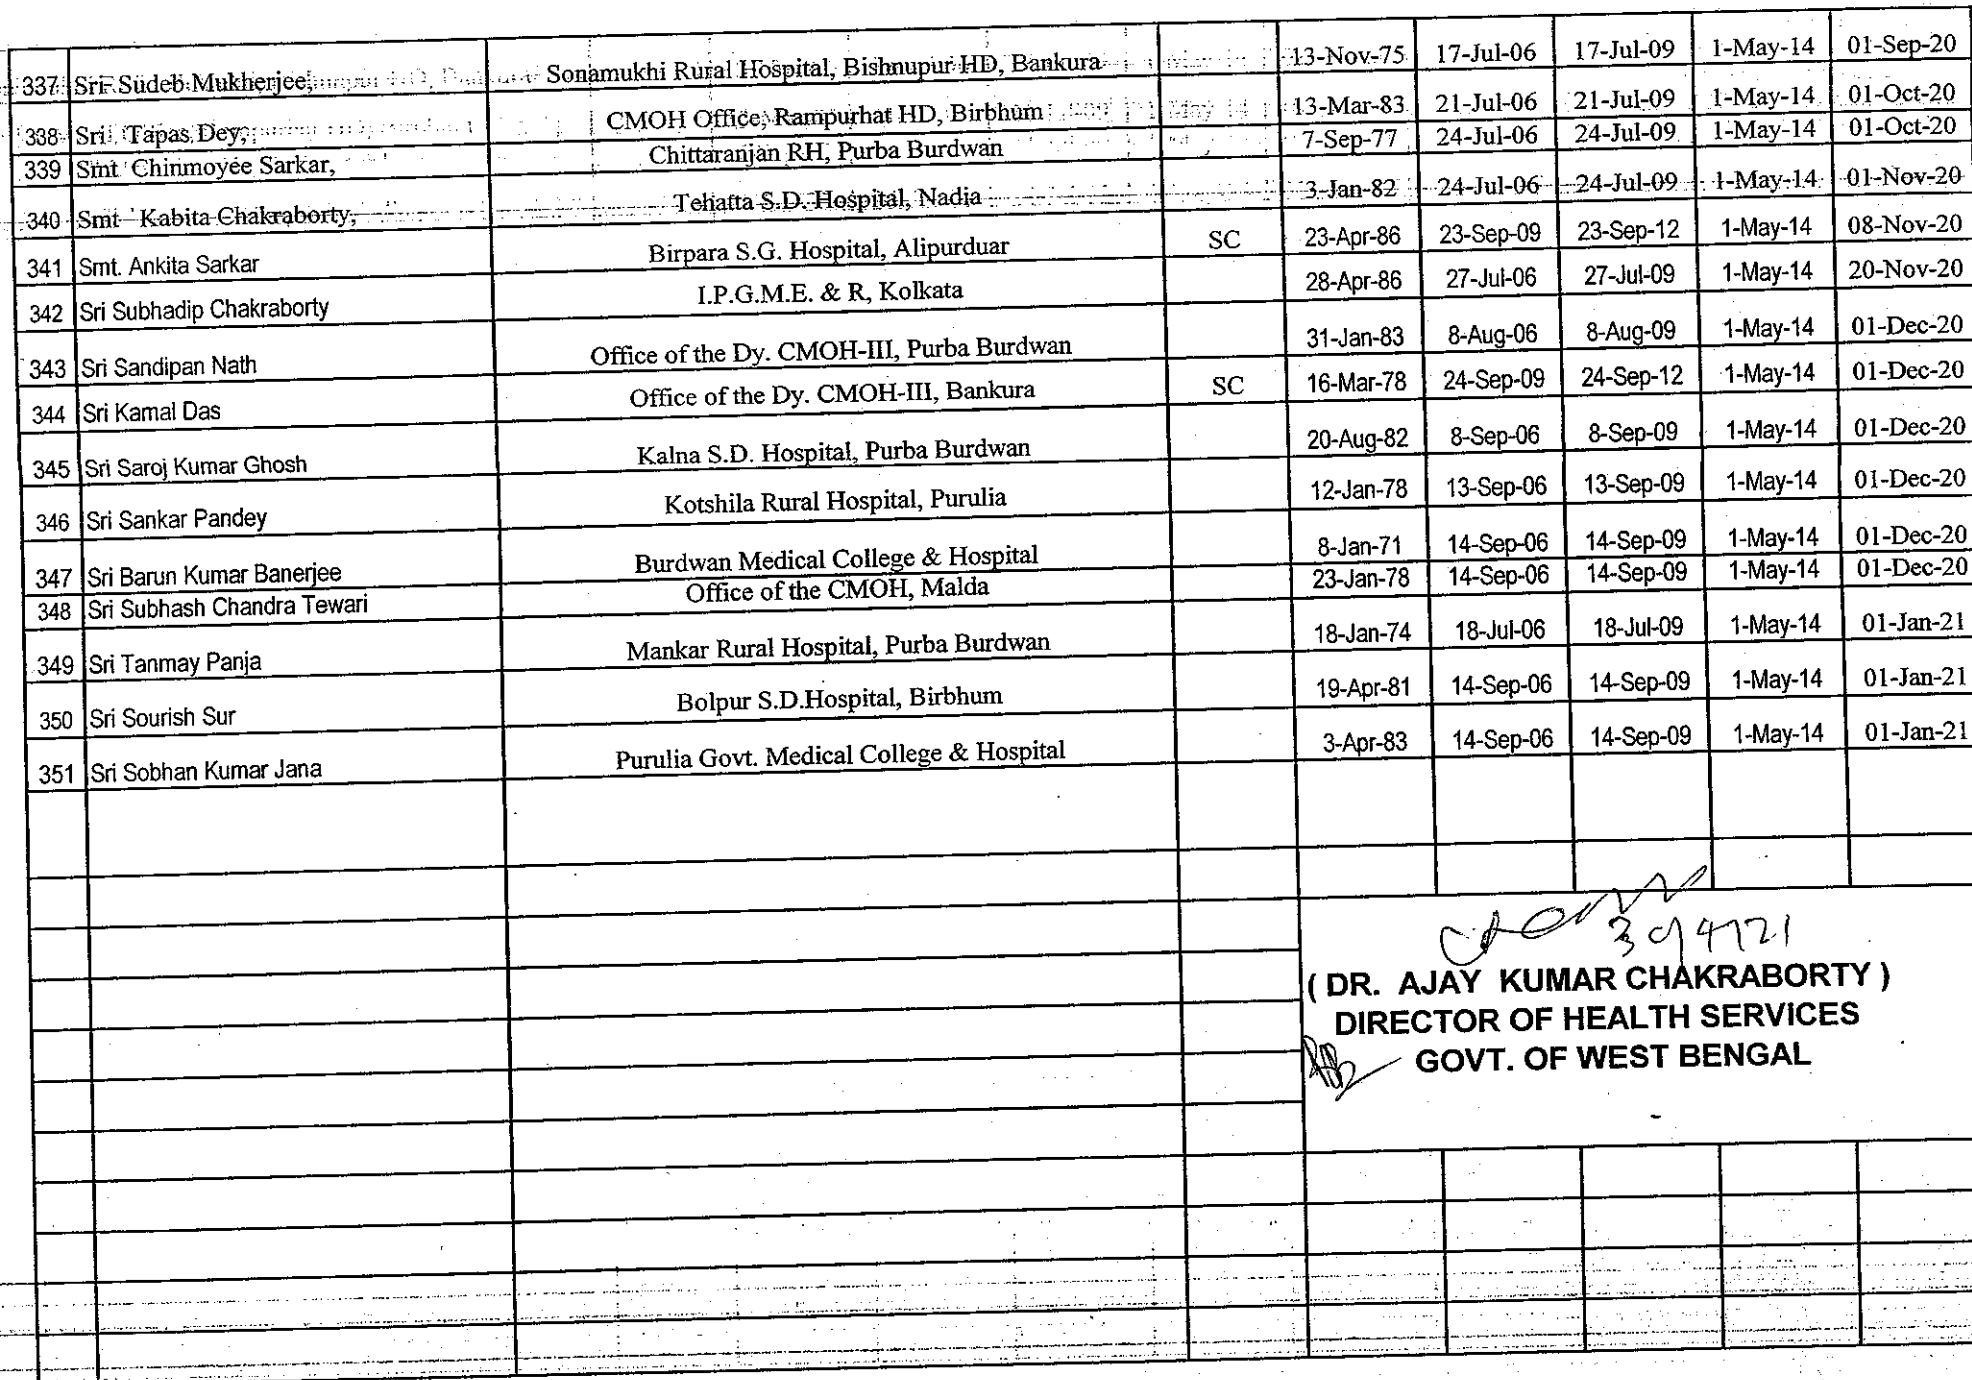 337 Sri Sudeb Mukherjee, Sonamukhi Rural Hospital, Bishnupur HD, Bankura 13-Nov-75 17-Jul-06 17-Jul-09 1-May-14 01-Sep-20
338 Sri Tapas Dey, CMOH Office, Rampurhat HD, Birbhum 13-Mar-83 21-Jul-06 21-Jul-09 1-May-14 01-Oct-20
339 Smt Chinmoyee Sarkar, Chittaranjan RH, Purba Burdwan 7-Sep-77 24-Jul-06 24-Jul-09 1-May-14 01-Oct-20
340 Smt Kabita Chakraborty, Tehatta S.D. Hospital, Nadia 3-Jan-82 24-Jul-06 24-Jul-09 1-May-14 01-Nov-20
341 Smt. Ankita Sarkar Birpara S.G. Hospital, Alipurduar SC 23-Apr-86 23-Sep-09 23-Sep-12 1-May-14 08-Nov-20
342 Sri Subhadip Chakraborty I.P.G.M.E. & R, Kolkata 28-Apr-86 27-Jul-06 27-Jul-09 1-May-14 20-Nov-20
343 Sri Sandipan Nath Office of the Dy. CMOH-III, Purba Burdwan 31-Jan-83 8-Aug-06 8-Aug-09 1-May-14 01-Dec-20
344 Sri Kamal Das Office of the Dy. CMOH-III, Bankura SC 16-Mar-78 24-Sep-09 24-Sep-12 1-May-14 01-Dec-20
345 Sri Saroj Kumar Ghosh Kalna S.D. Hospital, Purba Burdwan 20-Aug-82 8-Sep-06 8-Sep-09 1-May-14 01-Dec-20
346 Sri Sankar Pandey Kotshila Rural Hospital, Purulia 12-Jan-78 13-Sep-06 13-Sep-09 1-May-14 01-Dec-20
347 Sri Barun Kumar Banerjee Burdwan Medical College & Hospital 8-Jan-71 14-Sep-06 14-Sep-09 1-May-14 01-Dec-20
348 Sri Subhash Chandra Tewari Office of the CMOH, Malda 23-Jan-78 14-Sep-06 14-Sep-09 1-May-14 01-Dec-20
349 Sri Tanmay Panja Mankar Rural Hospital, Purba Burdwan 18-Jan-74 18-Jul-06 18-Jul-09 1-May-14 01-Jan-21
350 Sri Sourish Sur Bolpur S.D.Hospital, Birbhum 19-Apr-81 14-Sep-06 14-Sep-09 1-May-14 01-Jan-21
351 Sri Sobhan Kumar Jana Purulia Govt. Medical College & Hospital 3-Apr-83 14-Sep-06 14-Sep-09 1-May-14 01-Jan-21
( DR. AJAY KUMAR CHAKRABORTY )
DIRECTOR OF HEALTH SERVICES
GOVT. OF WEST BENGAL